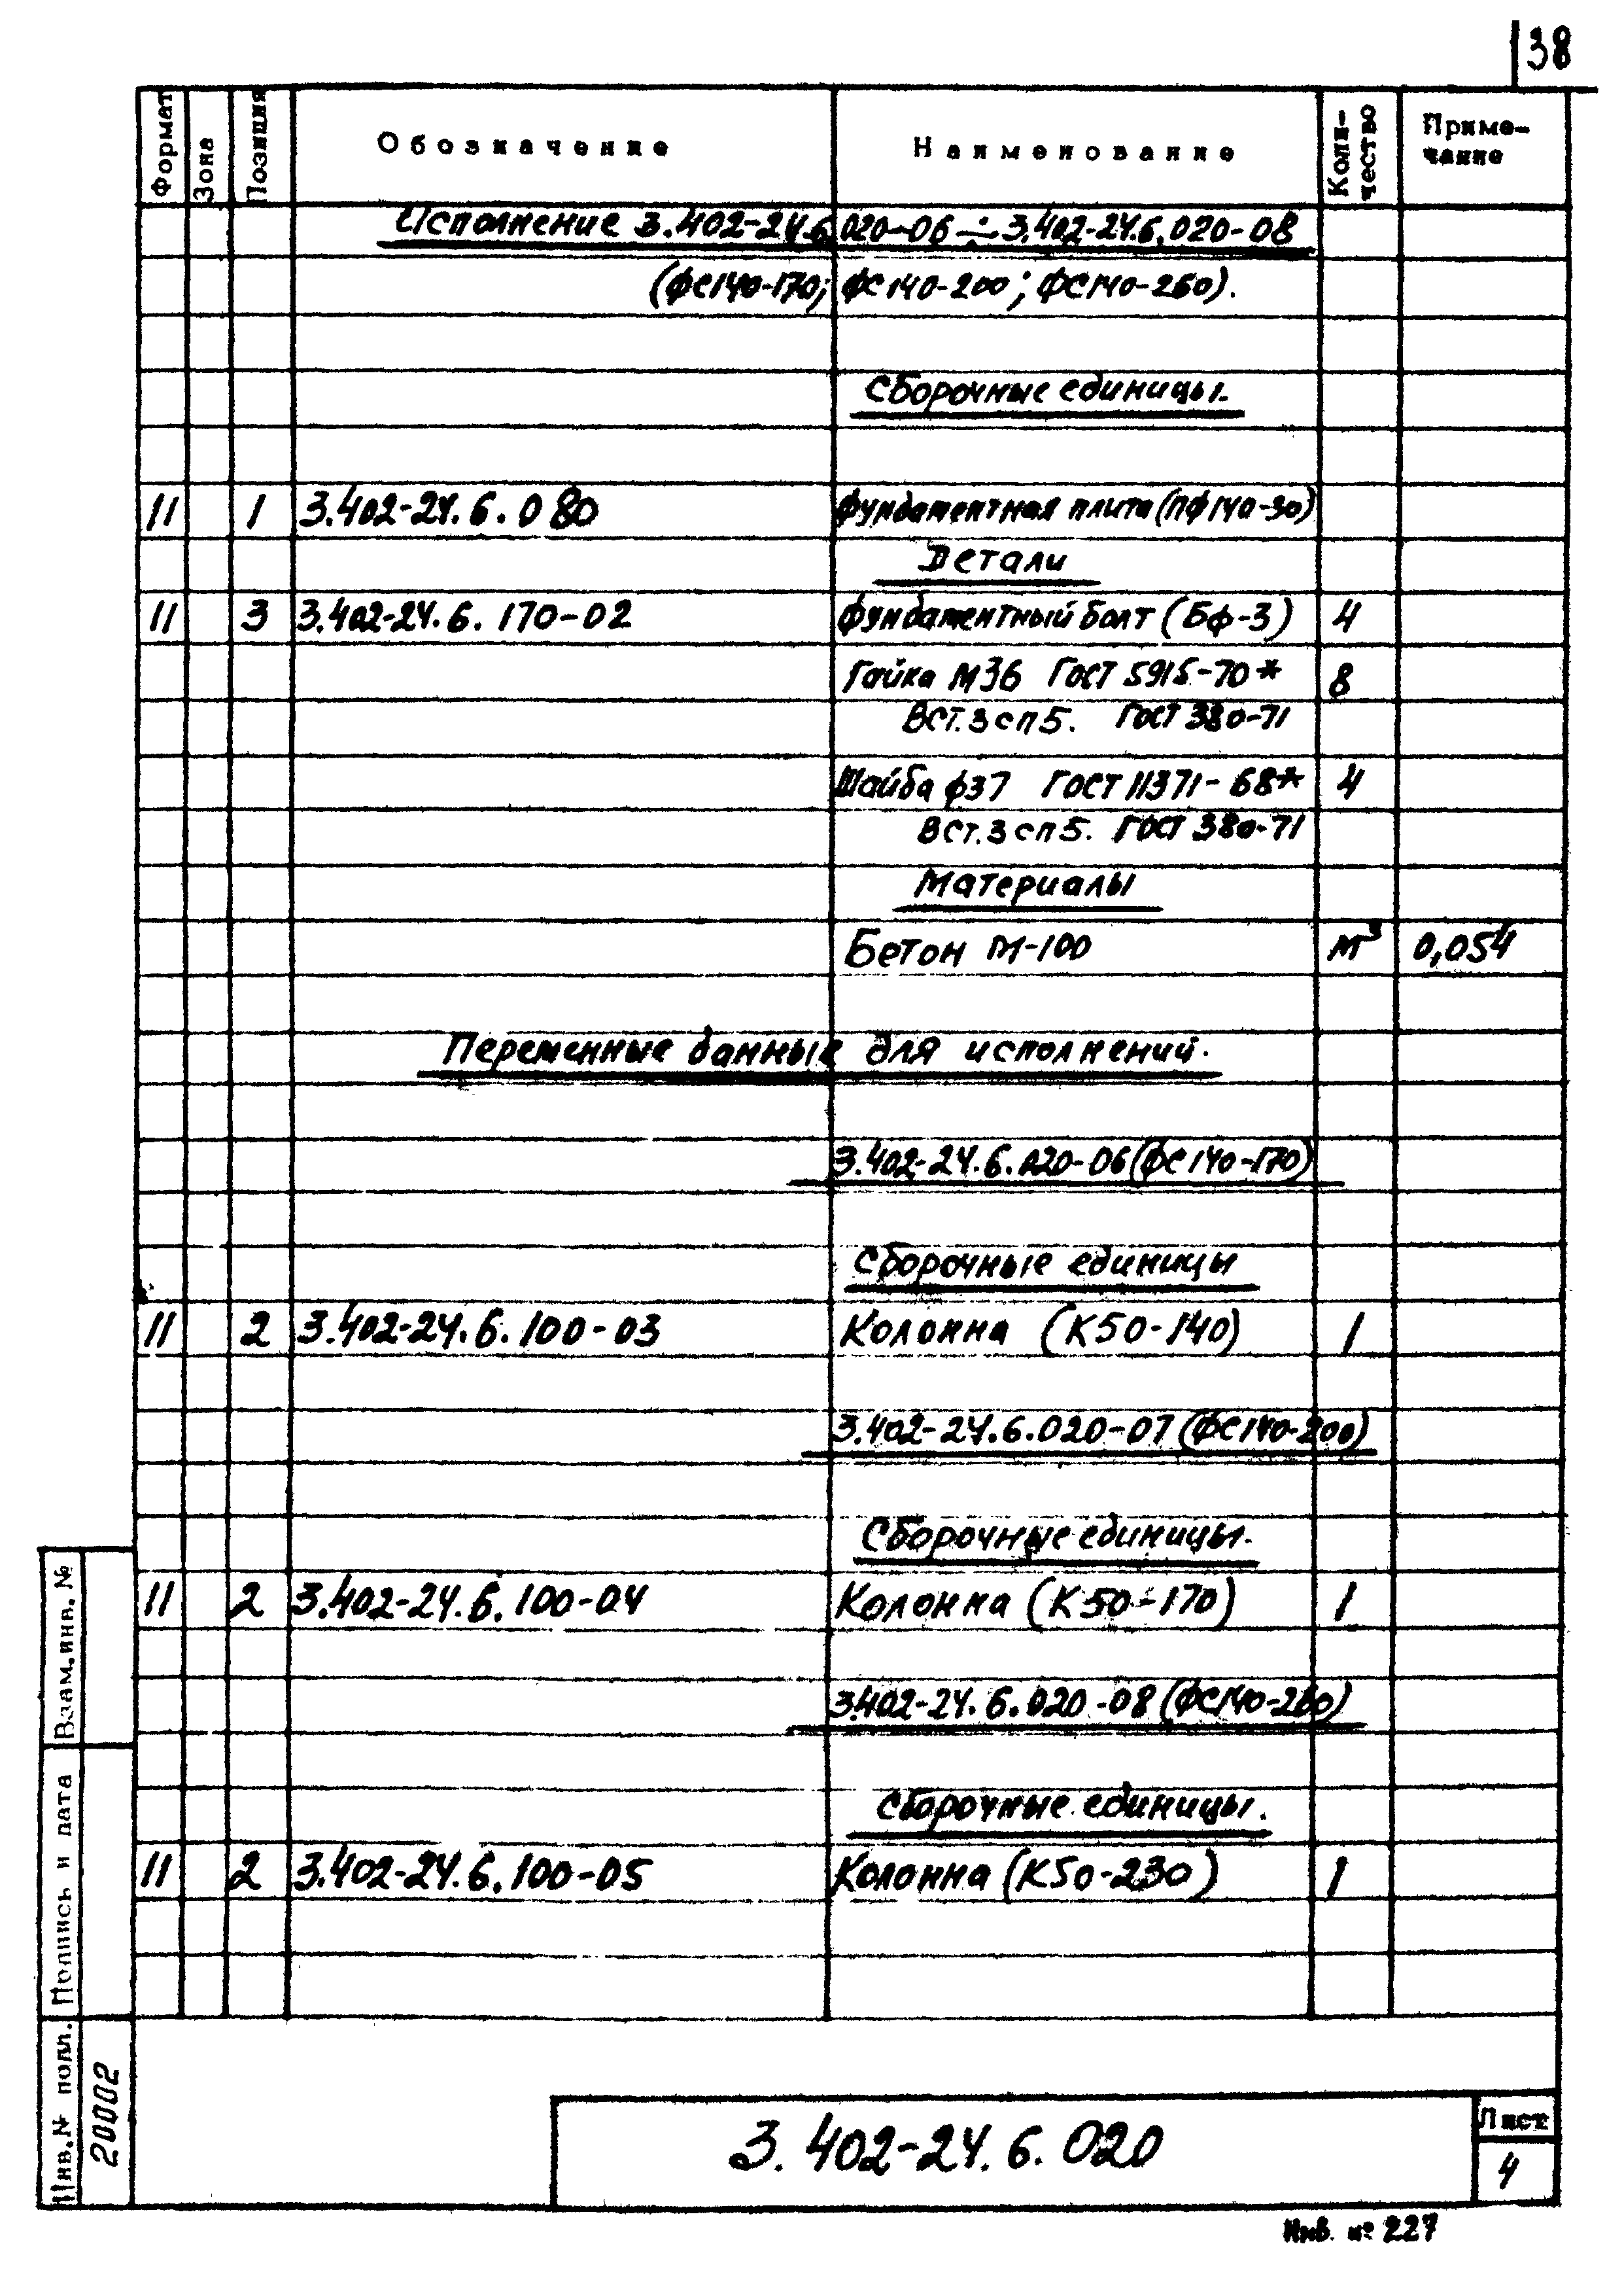 38
Формат Зона Позиция Обозначение Наименование Коли-чество Приме-чание
Исполнение 3.402-24.6.020-06 ÷ 3.402-24.6.020-08
(ФС140-170; ФС140-200; ФС140-260).
Сборочные единицы.
11 1 3.402-24.6.080 Фундаментная плита (ПФ140-30)
Детали
11 3 3.402-24.6.170-02 Фундаментный болт (БФ-3) 4
Гайка М36 ГОСТ 5915-70* 8
ВСт.3сп5. ГОСТ 380-71
Шайба ф37 ГОСТ 11371-68* 4
ВСт.3сп5. ГОСТ 380-71
Материалы
Бетон М-100 м³ 0,054
Переменные данные для исполнений.
3.402-24.6.020-06 (ФС140-170)
Сборочные единицы
11 2 3.402-24.6.100-03 Колонна (К50-140) 1
3.402-24.6.020-07 (ФС140-200)
Сборочные единицы.
11 2 3.402-24.6.100-04 Колонна (К50-170) 1
3.402-24.6.020-08 (ФС140-260)
Сборочные единицы.
11 2 3.402-24.6.100-05 Колонна (К50-230) 1
Взам.инв.№
Подпись и дата
Инв.№ подл.
20002
3.402-24.6.020
Лист
4
Инв. № 227